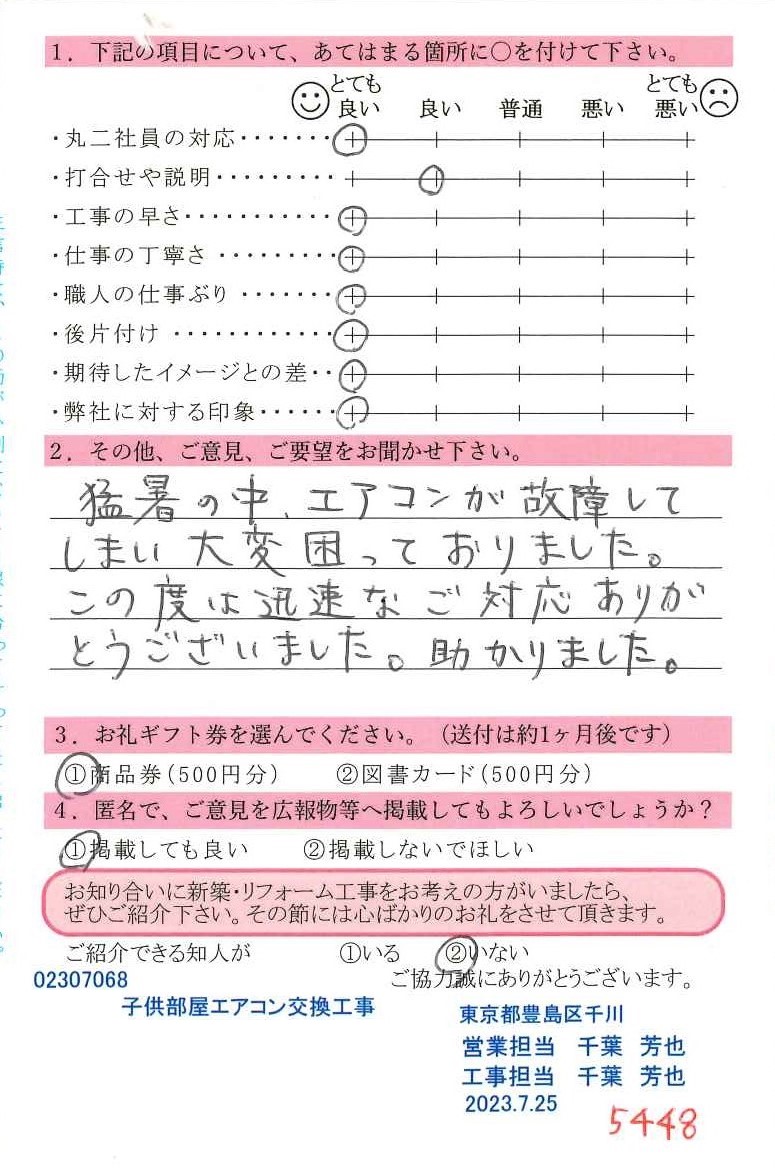 1．下記の項目について、あてはまる箇所に○を付けて下さい。
とても良い 良い 普通 悪い とても悪い
・丸二社員の対応・・・・・・・
・打合せや説明・・・・・・・・・
・工事の早さ・・・・・・・・・・・
・仕事の丁寧さ・・・・・・・・・
・職人の仕事ぶり・・・・・・・・
・後片付け・・・・・・・・・・・・
・期待したイメージとの差・・
・弊社に対する印象・・・・・・
2．その他、ご意見、ご要望をお聞かせ下さい。
猛暑の中、エアコンが故障して
しまい大変困っておりました。
この度は迅速なご対応ありが
とうございました。助かりました。
3．お礼ギフト券を選んでください。（送付は約1ヶ月後です）
①商品券（500円分） ②図書カード（500円分）
4．匿名で、ご意見を広報物等へ掲載してもよろしいでしょうか？
①掲載しても良い ②掲載しないでほしい
お知り合いに新築・リフォーム工事をお考えの方がいましたら、
ぜひご紹介下さい。その節には心ばかりのお礼をさせて頂きます。
ご紹介できる知人が ①いる ②いない
ご協力誠にありがとうございます。
02307068
子供部屋エアコン交換工事
東京都豊島区千川
営業担当 千葉 芳也
工事担当 千葉 芳也
2023.7.25
5448